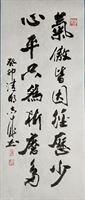 氣傲皆因經歷少
心平只為折磨多
癸卯